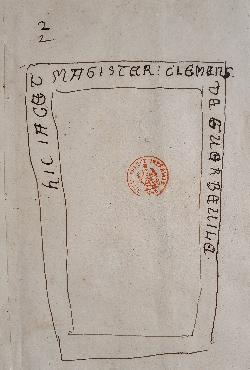 2
2
hIC IACET
MAGISTER : CLEMENS
DE GUERBEVILE